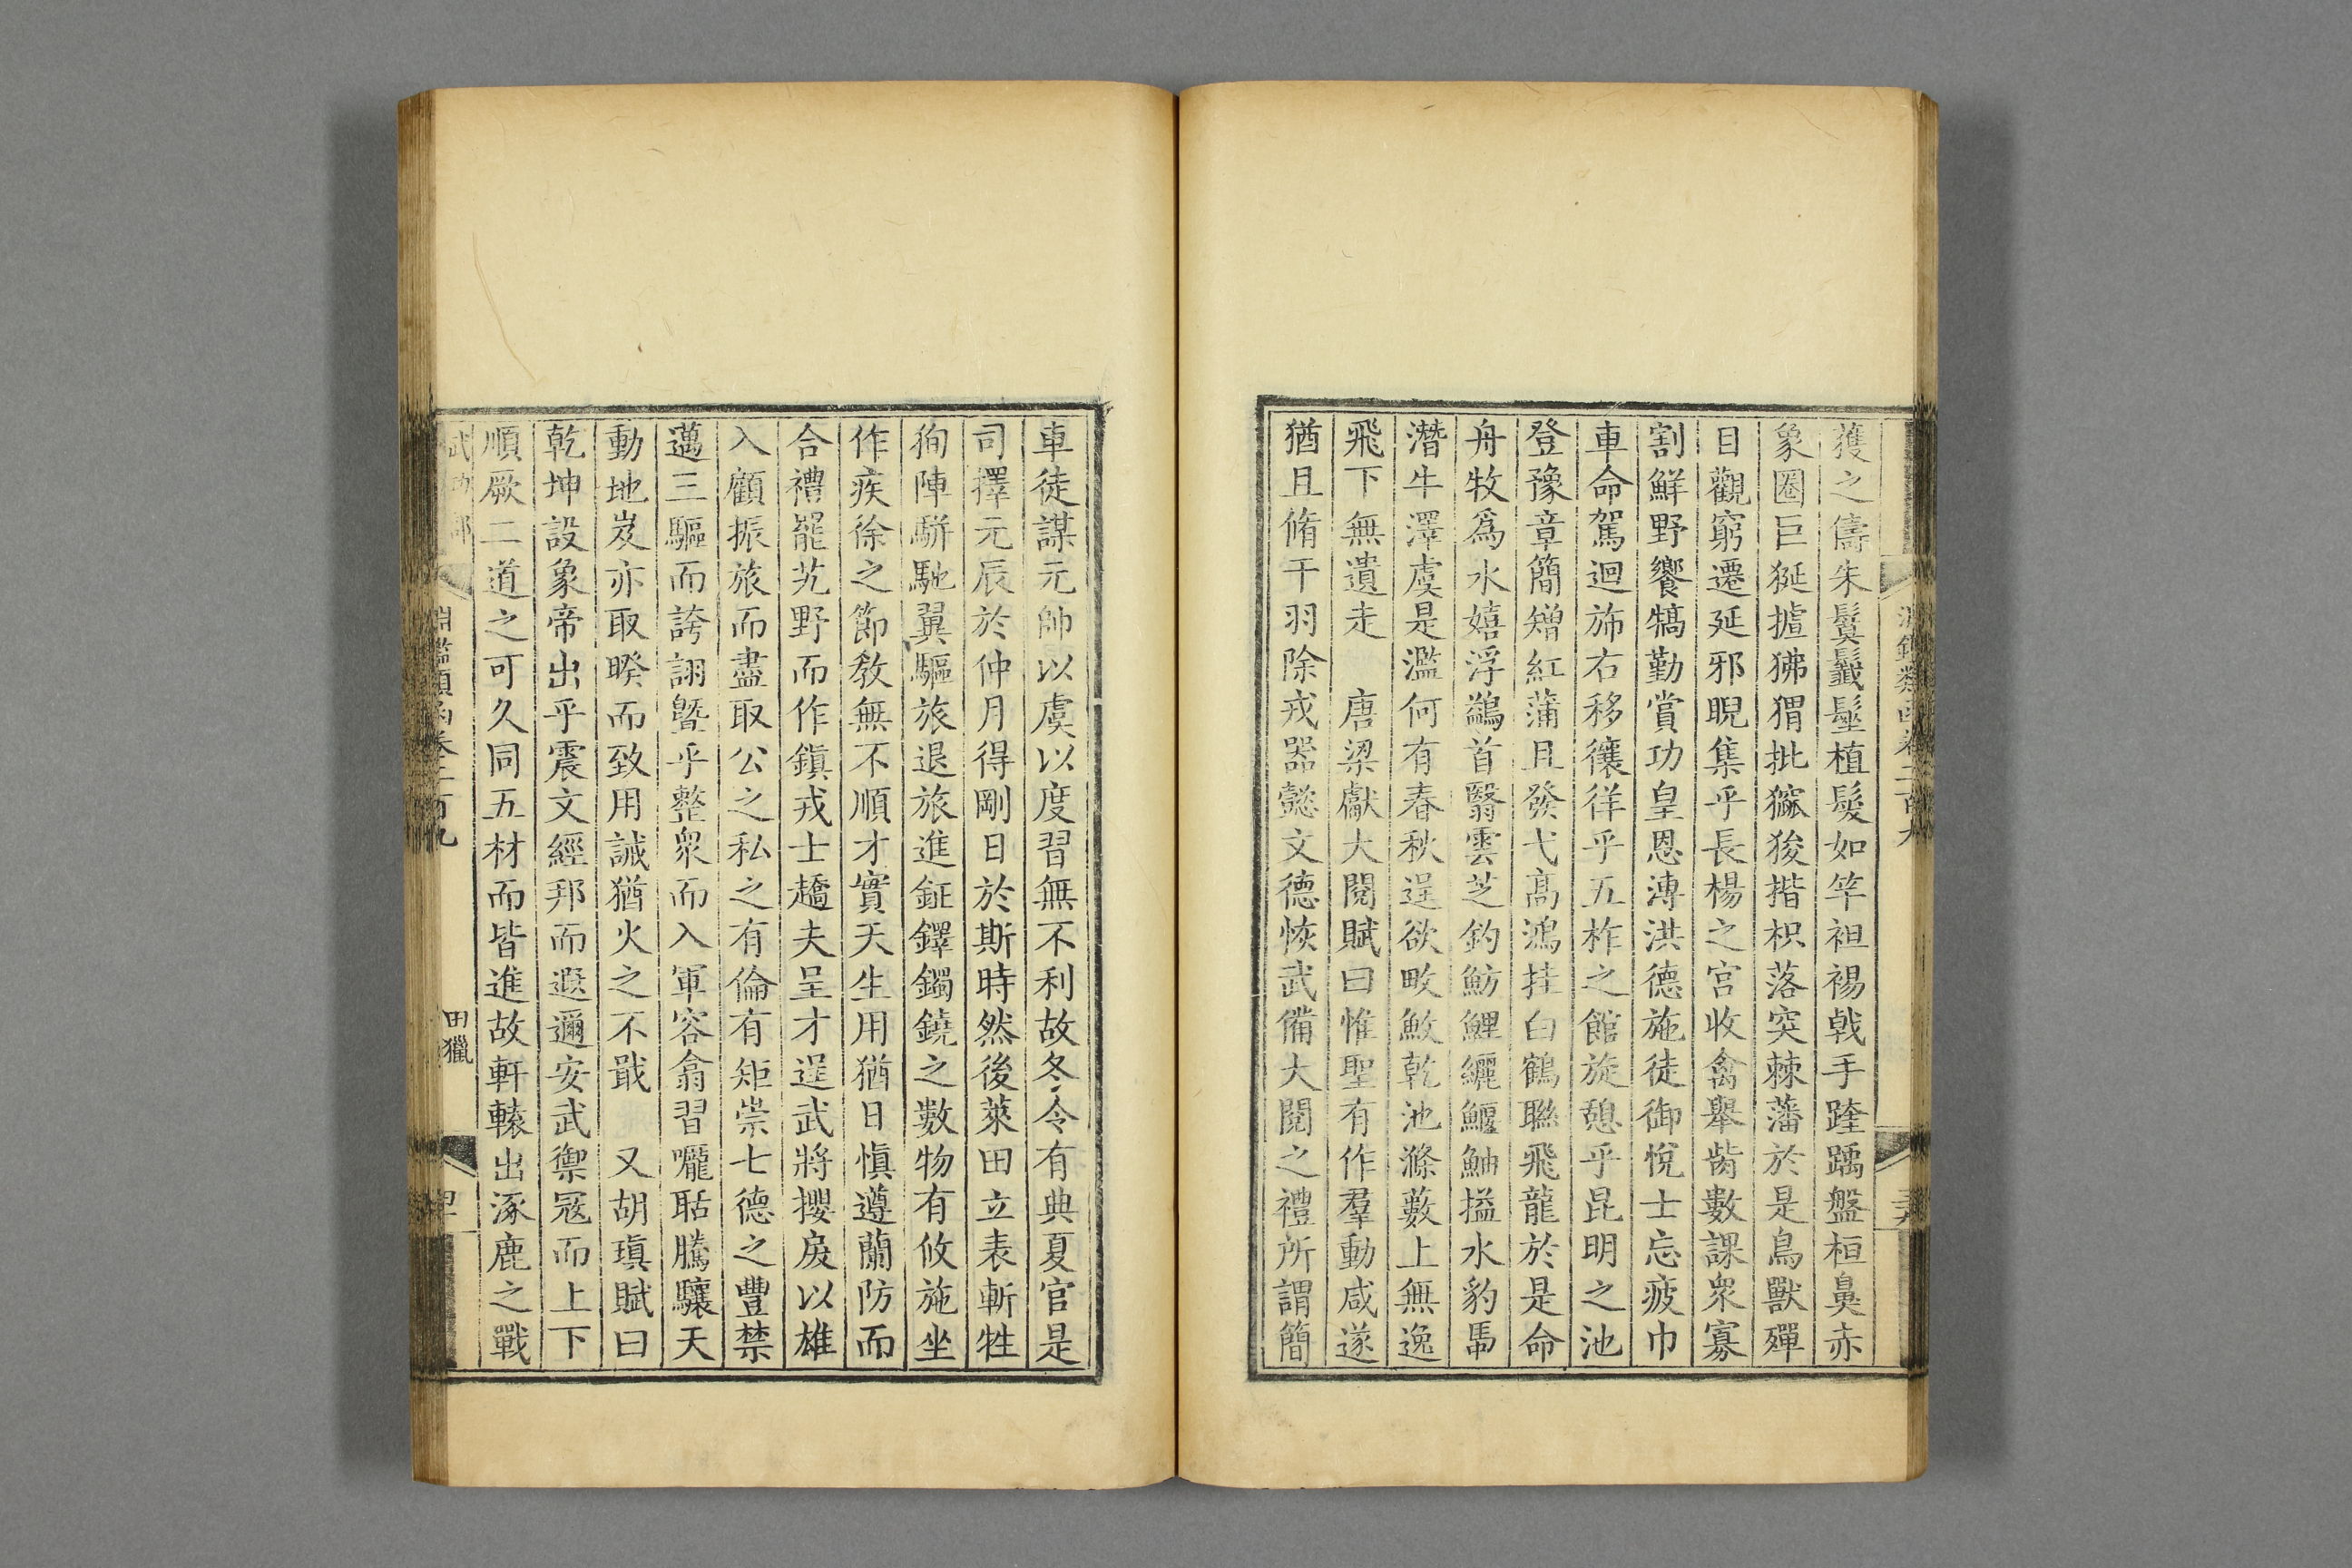 獲之儔朱鬕䰐髽植髮如竿袒裼戟手跬踽盤桓鼻赤
象圈巨狿摣狒猬批㺔狻揩枳落突棘藩於是鳥獸殫
目觀窮遷延邪睨集乎長楊之宮收禽舉胔數課衆寡
割鮮野饗犒勤賞功皇恩溥洪德施徒御悅士忘疲巾
車命駕迴斾右移儴徉乎五柞之館旋憩乎昆明之池
登豫章簡矰紅蒲且發弋高鴻挂白鶴聯飛龍於是命
舟牧爲水嬉浮鷁首翳雲芝釣魴鱧纚鰋鮋搤水豹馽
潛牛澤虞是濫何有春秋逞欲畋䱷乾池滌藪上無逸
飛下無遺走　唐梁獻大閱賦曰惟聖有作羣動咸遂
猶且脩干羽除戎器懿文德恢武備大閱之禮所謂簡
車徒謀元帥以虞以度習無不利故冬令有典夏官是
司擇元辰於仲月得剛日於斯時然後萊田立表斬牲
徇陣騈馳翼驅旅退旅進鉦鐸鐲鐃之數物有攸施坐
作疾徐之節教無不順才實天生用猶日愼遵蘭防而
合禮罷艽野而作鎭戎士趫夫呈才逞武將攖戾以雄
入顧振旅而盡取公之私之有倫有矩崇七德之豐禁
邁三驅而誇詡曁乎整衆而入軍容翕習嚨聒騰驤天
動地岌亦取睽而致用誠猶火之不戢　又胡瑱賦曰
乾坤設象帝出乎震文經邦而遐邇安武禦寇而上下
順厥二道之可久同五材而皆進故軒轅出涿鹿之戰
武功部
淵鑑類函卷二百九
田獵